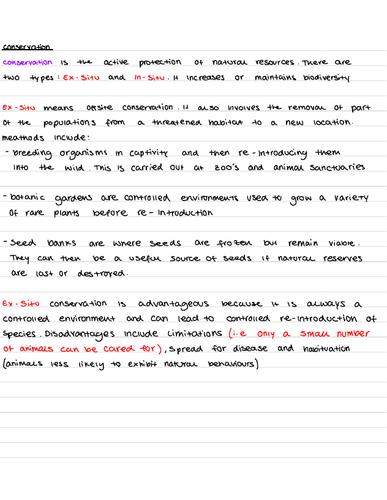 conservation
conservation is the active protection of natural resources. There are
two types: Ex-Situ and In-Situ. It increases or maintains biodiversity
Ex-Situ means offsite conservation. It also involves the removal of part
of the populations from a threatened habitat to a new location.
meathods include:
- breeding organisms in captivity and then re-introducing them
into the wild. This is carried out at zoo's and animal sanctuaries
- botanic gardens are controlled environments used to grow a variety
of rare plants before re-introduction
- seed banks are where seeds are frozen but remain viable.
They can then be a useful source of seeds if natural reserves
are lost or destroyed.
Ex-Situ conservation is advantageous because it is always a
controlled environment and can lead to controlled re-introduction of
species. Disadvantages include limitations (i.e only a small number
of animals can be cared for), spread for disease and habituation
(animals less likely to exhibit natural behaviours)